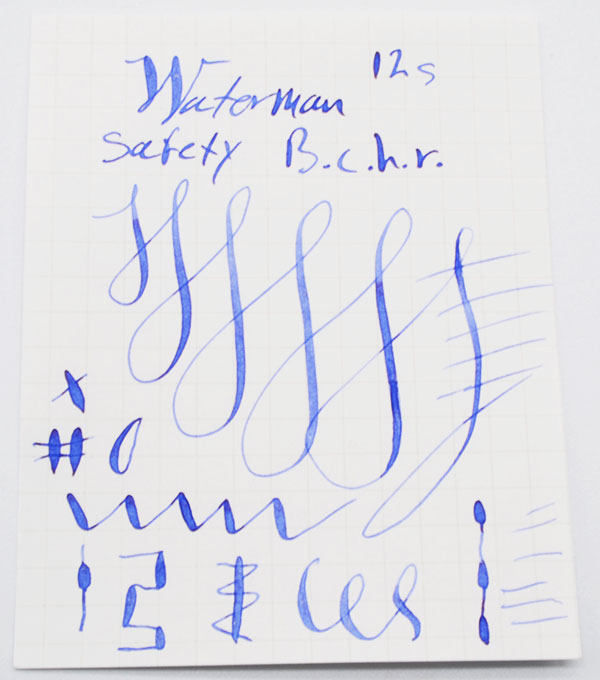 Waterman 12s
Safety B.c.h.r.